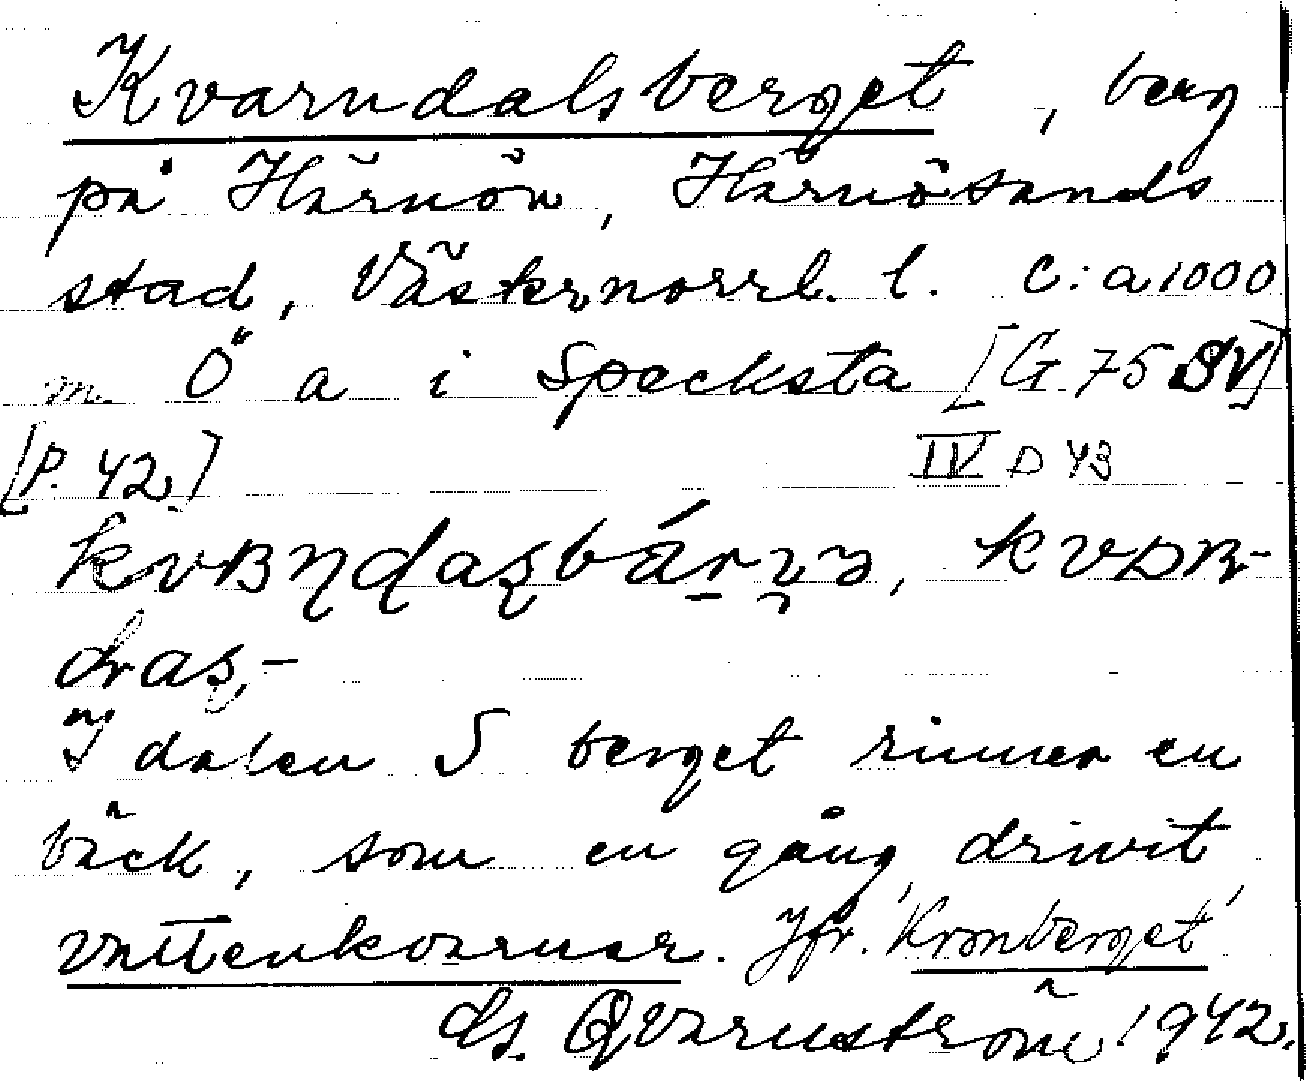 Kvarndalsberget, berg
på Härnön, Härnösands
stad, Västernorrl. l. C:a 1000
m Ö a i Specksta [G 75 SV]
[P. 42] IV D 43
I dalen S berget rinner en
bäck, som en gång drivit
vattenkvarnar. Jfr. 'Kronberget'
Qvarnström 1942.